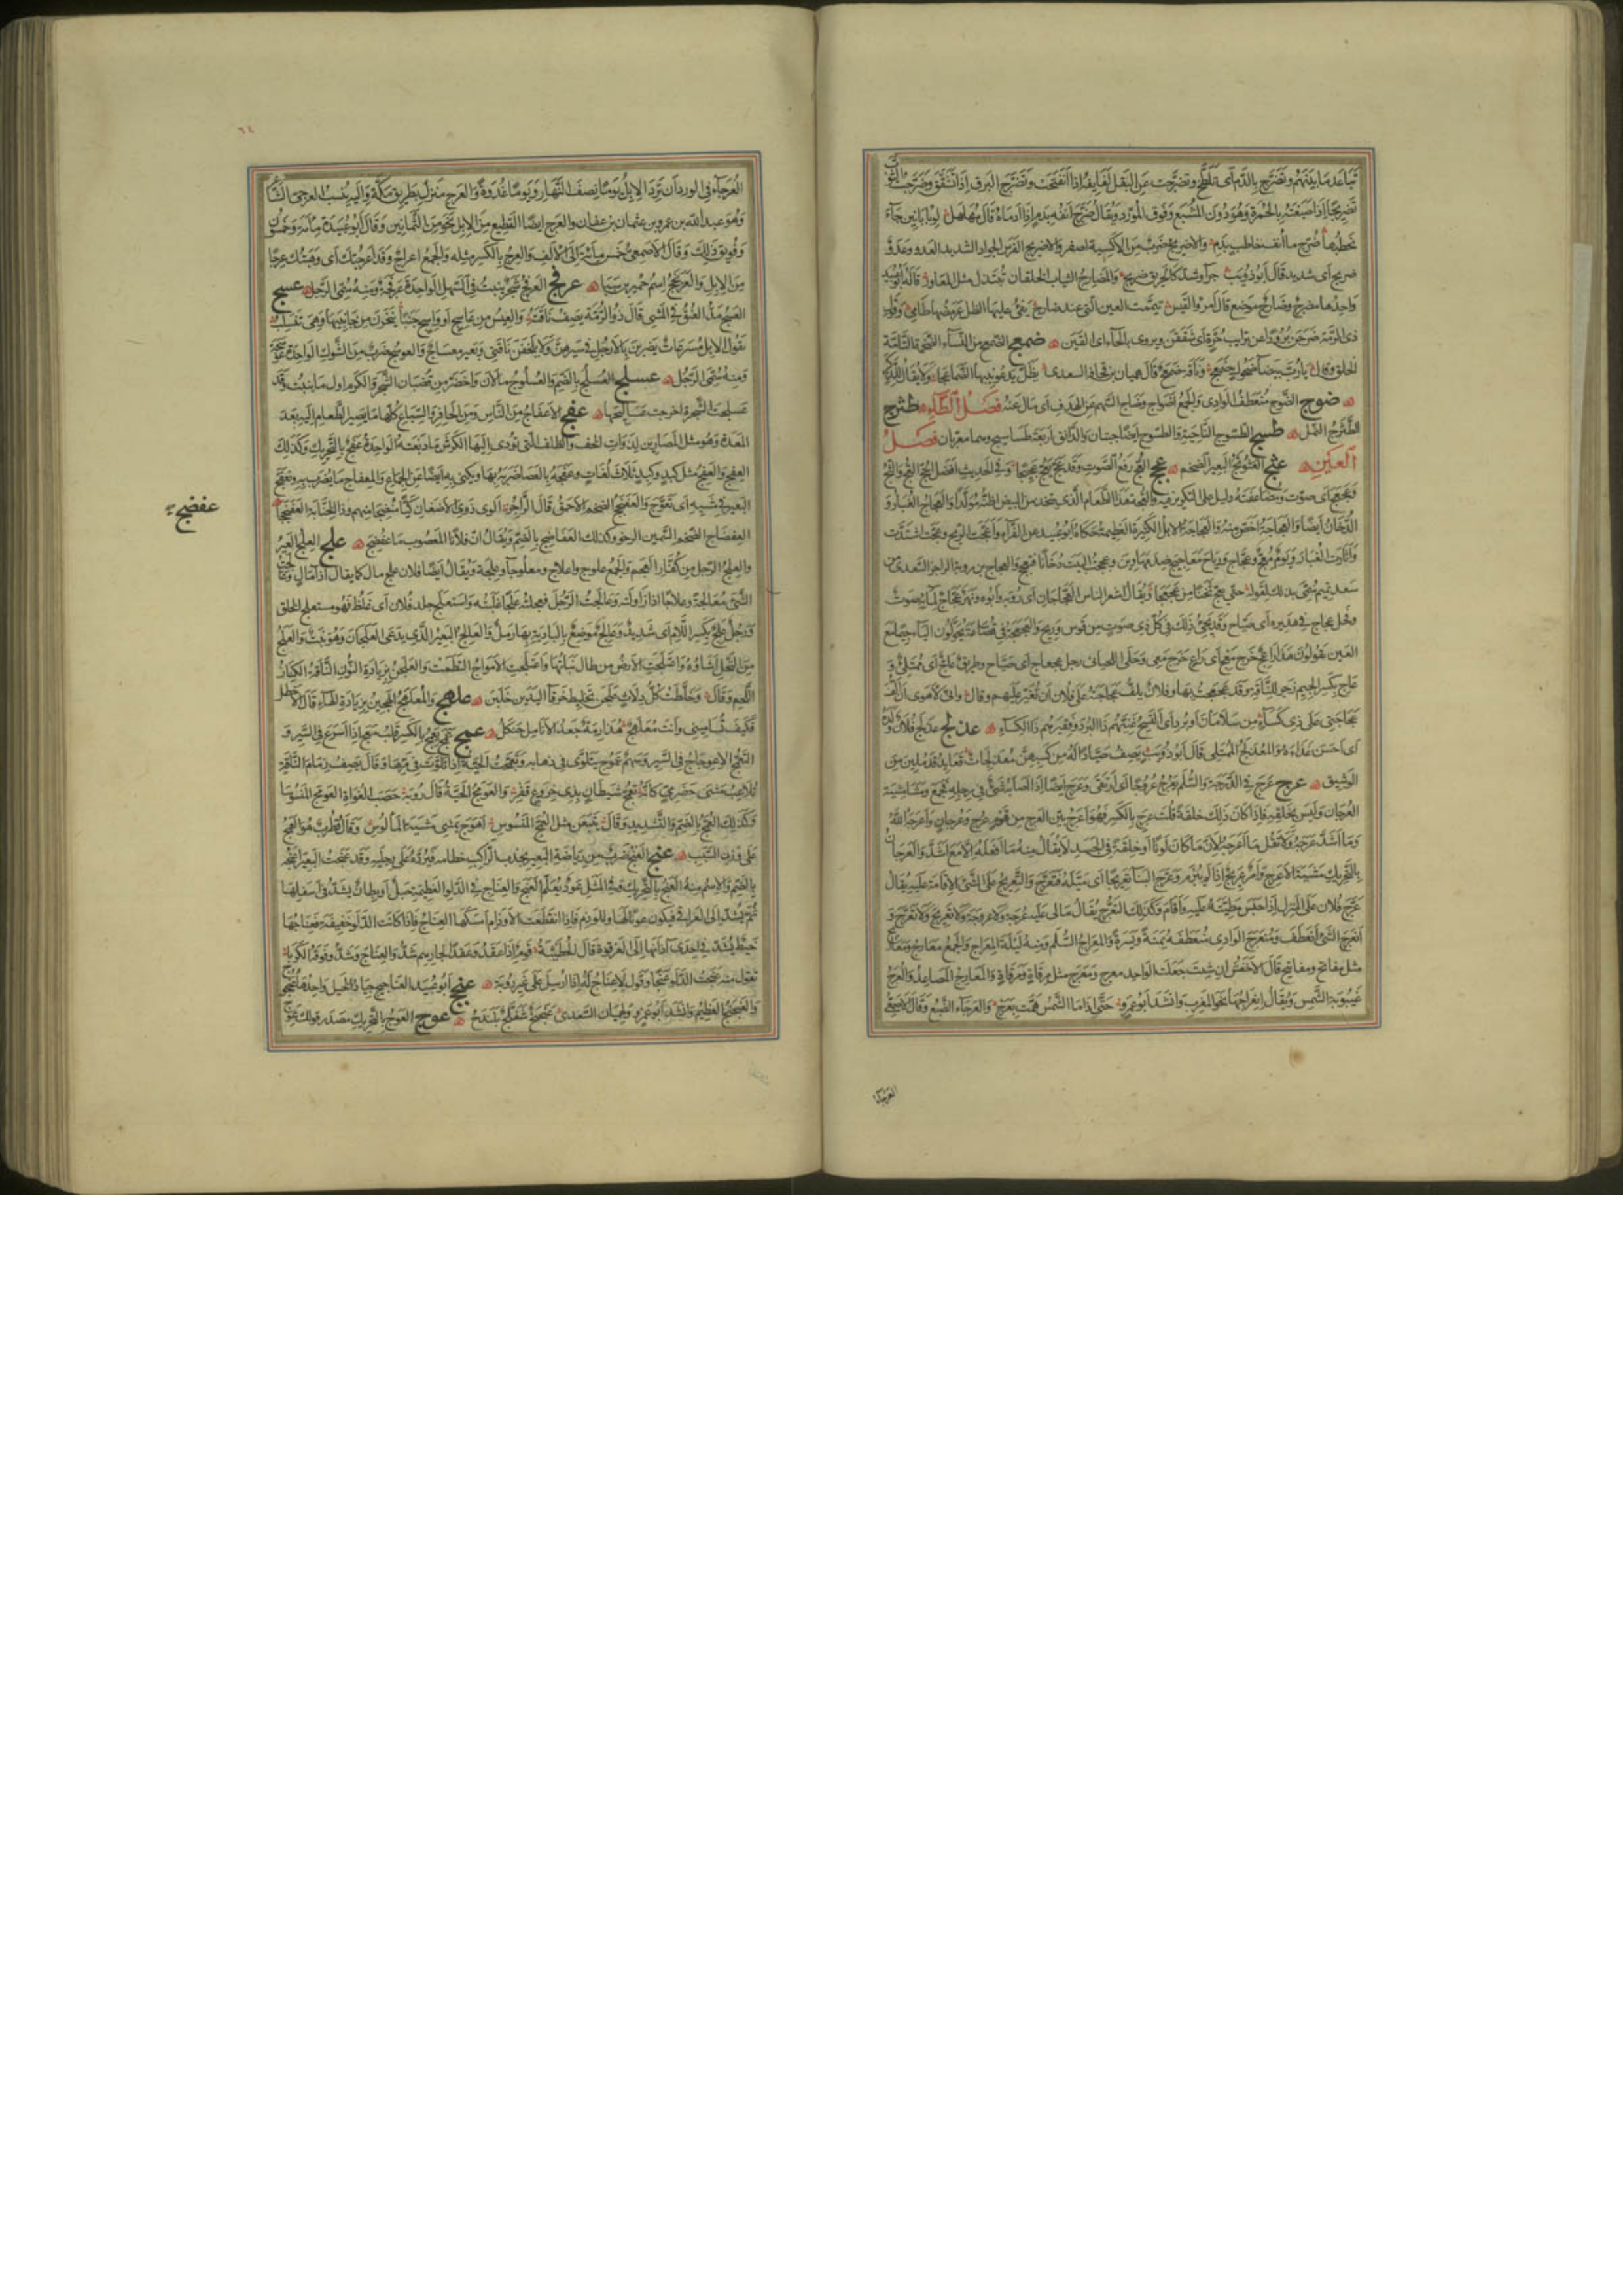 تباعد ما بينهم وتضرج بالدم اى تلطخ وتضرجت عن البقل لفايفه اذا انفتحت وتضرج البرق اذا تشقق وضرجت الثوب
تضريجا اذا صبغته بالحمرة وهو دون المشبع وفوق المورد ويقال ضرج انفه بدم اذا ادماه قال مهلهل لو بابانين جاء
يخطبها ضرج ما انف خاطب بدم والاضريج ضرب من الاكسية اصفر والاضريج الفرس الجواد الشديد العدو وعدو
ضريج اى شديد قال ابو ذؤيب جراء وشد كالحريق ضريج والمضارج الثياب الخلقان تبتذل مثل المعاوز قاله ابو عبيد
واحدها مضرج وضارج موضع قال امرؤ القيس تيممت العين التى عند ضارج يفئ عليها الظل عرمضها طامى
ذى الرمة ضرجن برودا عن ترايب حرة اى شققن ويروى بالحاء اى القين ضمعج الضمعج من النساء الضخمة التامة
الخلق يا رب بيضاء ضحوك ضمعج وناقة ضمعج قال هميان بن قحافة السعدى يظل يدعو نيبها الضماعجا ولا يقال للذكر
ضوج الضوج منعطف الوادى والجمع اضواج وضاج السهم عن الهدف اى مال عنه فصل الطاء طثرج
الطثرج النمل طسج الطسوج الناحية والطسوج ايضا حبتان والدانق اربعة طساسيج وهما معربان فصل
العين عثج العثوثج البعير الضخم عجج العج رفع الصوت وقد عج يعج عجيجا وفى الحديث افضل الحج العج والثج
وعجعج اى صوت ومضاعفته دليل على التكرير فيه والعجة هذا الطعام الذى يتخذ من البيض اظنه مولدا والعجاج الغبار و
الدخان ايضا والعجاجة اخص منه والعجاجة الابل الكثيرة العظيمة حكاه ابو عبيد عن الفراء واعجت الريح وعجت اشتدت
واثارت الغبار ويوم معج وعجاج ورياح معاجيج ضد مهاوين وعججت البيت دخانا فتعجج والعجاج بن رؤبة الراجز السعدى من
سعد تميم سمى بذلك لقوله حتى يعج ثخنا من عجعجا ويقال اشعر الناس العجاجان اى رؤبة وابوه ونهر عجاج لمائه صوت
وفحل عجاج فى هديره اى صياح وقد يجئ ذلك فى كل ذى صوت من قوس وريح والعجعجة فى قضاعة يحولون الياء جيما مع
العين يقولون هذا راعج خرج معج اى راعى خرج معى وحكى اللحيانى رجل عجعاج اى صياح وطريق عاج اى ممتلئ و
عاج بكسر الجيم زجر للناقة وقد عجعجت بها وفلان يلف عجاجته على فلان اى يغير عليهم وقال وانى لاهوى ان الف
عجاجتى على ذى كساء من سلامان او برد اى اكتسح غنيهم ذا البرد وفقيرهم ذا الكساء عذلج عذلج فلان ولده
اى احسن غذاءه والمعذلج الممتلى قال ابو ذؤيب يصف صيادا له من كسبهن معذلجات قعايد قد ملين من
الوشيق عرج عرج فى الدرجة والسلم يعرج عروجا اى ارتقى وعرج ايضا اذا اصابه شئ فى رجله فخمع ومشى مشية
العرجان وليس بخلقة فاذا كان ذلك خلقة قلت عرج بالكسر فهو اعرج بين العرج من قوم عرج وعرجان واعرجه الله
وما اشد عرجه ولا تقل ما اعرجه لان ما كان لونا او خلقة فى الجسد لا يقال منه ما افعله الا مع اشد والعرجان
بالتحريك مشية الاعرج وامر عريج اذا لم يبرم وعرج البناء تعريجا اى ميله فتعرج والتعريج على الشئ الاقامة عليه يقال
عرج فلان على المنزل اذا حبس مطيته عليه واقام وكذلك التعرج يقال مالى عليه عرجة ولا عرجة ولا تعريج ولا تعرج و
انعرج الشئ انعطف ومنعرج الوادى منعطفه يمنة ويسرة والمعراج السلم ومنه ليلة المعراج والجمع معارج ومعاريج
مثل مفاتح ومفاتيح قال الاخفش ان شئت جعلت الواحد معرج ومعرج مثل مرقاة ومرقاة والمعارج المصاعد والعرج
غيبوبة الشمس ويقال انعراجها نحو المغرب وانشد ابو عمرو حتى اذا ما الشمس همت بعرج والعرجاء الضبع وقال الاصمعى
العرجاء
٦٤
العرجاء فى الورد ان ترد الابل يوما نصف النهار ويوما غدوة والعرج منزل بطريق مكة واليه ينسب العرجى الشاعر
وهو عبد الله بن عمرو بن عثمان بن عفان والعرج ايضا القطيع من الابل نحو من الثمانين وقال ابو عبيدة مائة وخمسون
وفويق ذلك وقال الاصمعى خمس مائة الى الالف والعرج بالكسر مثله والجمع اعراج وقد اعرجتك اى وهبتك عرجا
من الابل والعرنجج اسم حمير بن سبا عرفج العرفج شجر ينبت فى السهل الواحدة عرفجة ومنه سمى الرجل عسج
العسج مد العنق فى المشى قال ذو الرمة يصف ناقته والعيس من عاسج او واسج خببا ينحزن من جانبيها وهى تنسلب
يقول الابل مسرعات يضربن بالارجل فى سيرهن ولا يلحقن ناقتى وبعير معساج والعوسج ضرب من الشوك الواحدة عوسجة
ومنه سمى الرجل عسلج العسلج بالضم والعسلوج ما لان واخضر من قضبان الشجر والكرم اول ما ينبت وقد
عسلجت الشجرة اخرجت عساليجها عفج الاعفاج من الناس ومن الحافر والسباع كلها ما يصير الطعام اليه بعد
المعدة وهو مثل المصارين لذوات الخف والظلف التى تؤدى اليها الكرش ما دبغته الواحدة عفج بالتحريك وكذلك
العفج والعفج مثل كبد وكبد ثلاث لغات وعفجه بالعصا ضربه بها ويكنى به ايضا عن الجماع والمعفاج ما يضرب به وتعفج
البعير فى مشيه اى تعوج والعفنجج الضخم الاحمق قال الراجز اكوى ذوى الاضغان كيا منضجا منهم وذا الخنابة العفنججا
العفضاج الضخم السمين الرخو وكذلك العفاضج بالضم ويقال ان فلانا المعصوب ما عفضج علج العلج العير
والعلج الرجل من كفار العجم والجمع علوج واعلاج ومعلوجاء وعلجة ويقال ايضا فلان علج مال كما يقال ازاء مال وعالجت
الشئ معالجة وعلاجا اذا زاولته وعالجت الرجل فعلجته علجا غلبته واستعلج جلد فلان اى غلظ فهو مستعلج الخلق
ورجل علج بكسر اللام اى شديد وعالج موضع بالبادية بها رمل والعالج البعير الذى يرعى العلجان وهو نبت والعلج
من النخل اشاؤه واعتلجت الارض من طال نباتها واعتلجت الامواج التطمت والعلجن بزيادة النون الناقة الكناز
اللحم وقال وخلطت كل دلاث علجن تخليط خرقاء اليدين خلبن علهج والمعلهج الهجين بزيادة الهاء قال الاخطل
فكيف تسامينى وانت معلهج هذارمة جعد الانامل حنكل عمج عمج يعمج بالكسر قلب معج اذا اسرع فى السير و
التعمج الاعوجاج فى السير وسهم عموج يتلوى فى ذهابه وتعمجت الحية اذا تلوت فى مرها وقال يصف زمام الناقة
تلاعب مثنى حضرمى كانه تعمج شيطان بذى خروع قفر والعومج الحية قال رؤبة حصب الغواة العومج المنسوسا
وكذلك العمج بالضم والتشديد وقال يتبعن مثل العمج المنسوس اهوج يمشى مشية المألوس وقال قطرب هو العمج
على وزن السبب عنج العنج ضرب من رياضة البعير يجذب الراكب خطامه فيرده على رجليه وقد عنجت البعير اعنجه
بالضم والاسم منه العنج بالتحريك وفى المثل عود يعلم العنج والعناج فى الدلو العظيمة حبل او بطان يشد فى اسفلها
ثم يشد الى العراقى فيكون عونا لها وللوذم فاذا انقطعت الاوذام امسكها العناج فاذا كانت الدلو خفيفة فعناجها
خيط يشد فى احدى آذانها الى العرقوة قال الحطيئة قوم اذا عقدوا عقدا لجارهم شدوا العناج وشدوا فوقه الكربا
تقول منه عنجت الدلو عنجا وقول لا عناج له اذا ارسل على غير روية عنجج ابو عبيد العناجيج جياد الخيل واحدها عنجوج
والعنجج العظيم وانشد ابو عمرو لهميان السعدى عنجج شفلح بلندح عوج العوج بالتحريك مصدر قولك عوج
عفضج